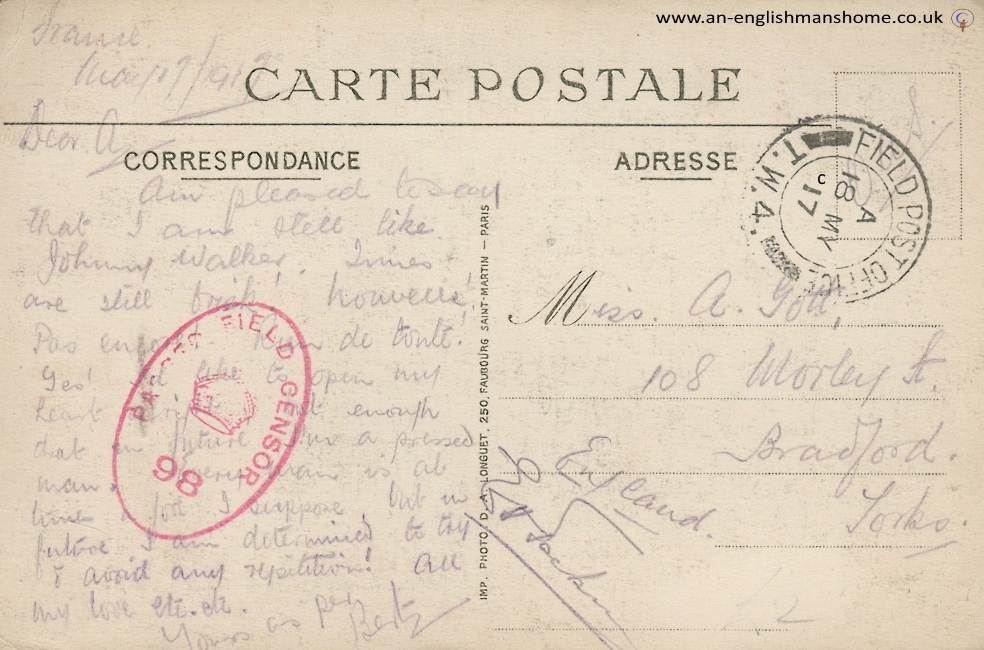 www.an-englishmanshome.co.uk
CARTE POSTALE
CORRESPONDANCE
ADRESSE
France.
Dear A,
Am pleased to say
that I am still like
Johnny Walker. Times
are still brisk!
Pas encore! Rien de tout!
Yes! to open my
heart enough
that in future a pressed
man. is at
time I suppose, but in
future I am determined to try
& avoid any repitition! All
my love etc. etc.
Yours as per
Bert
Miss. A. Gott,
108 Morley St.
Bradford.
Yorks.
England.
IMP. PHOTO. D. A. LONGUET, 250, FAUBOURG SAINT-MARTIN — PARIS
FIELD POST OFFICE
T.W.4.
C
A
18 MY
17
PASSED FIELD CENSOR
98
2